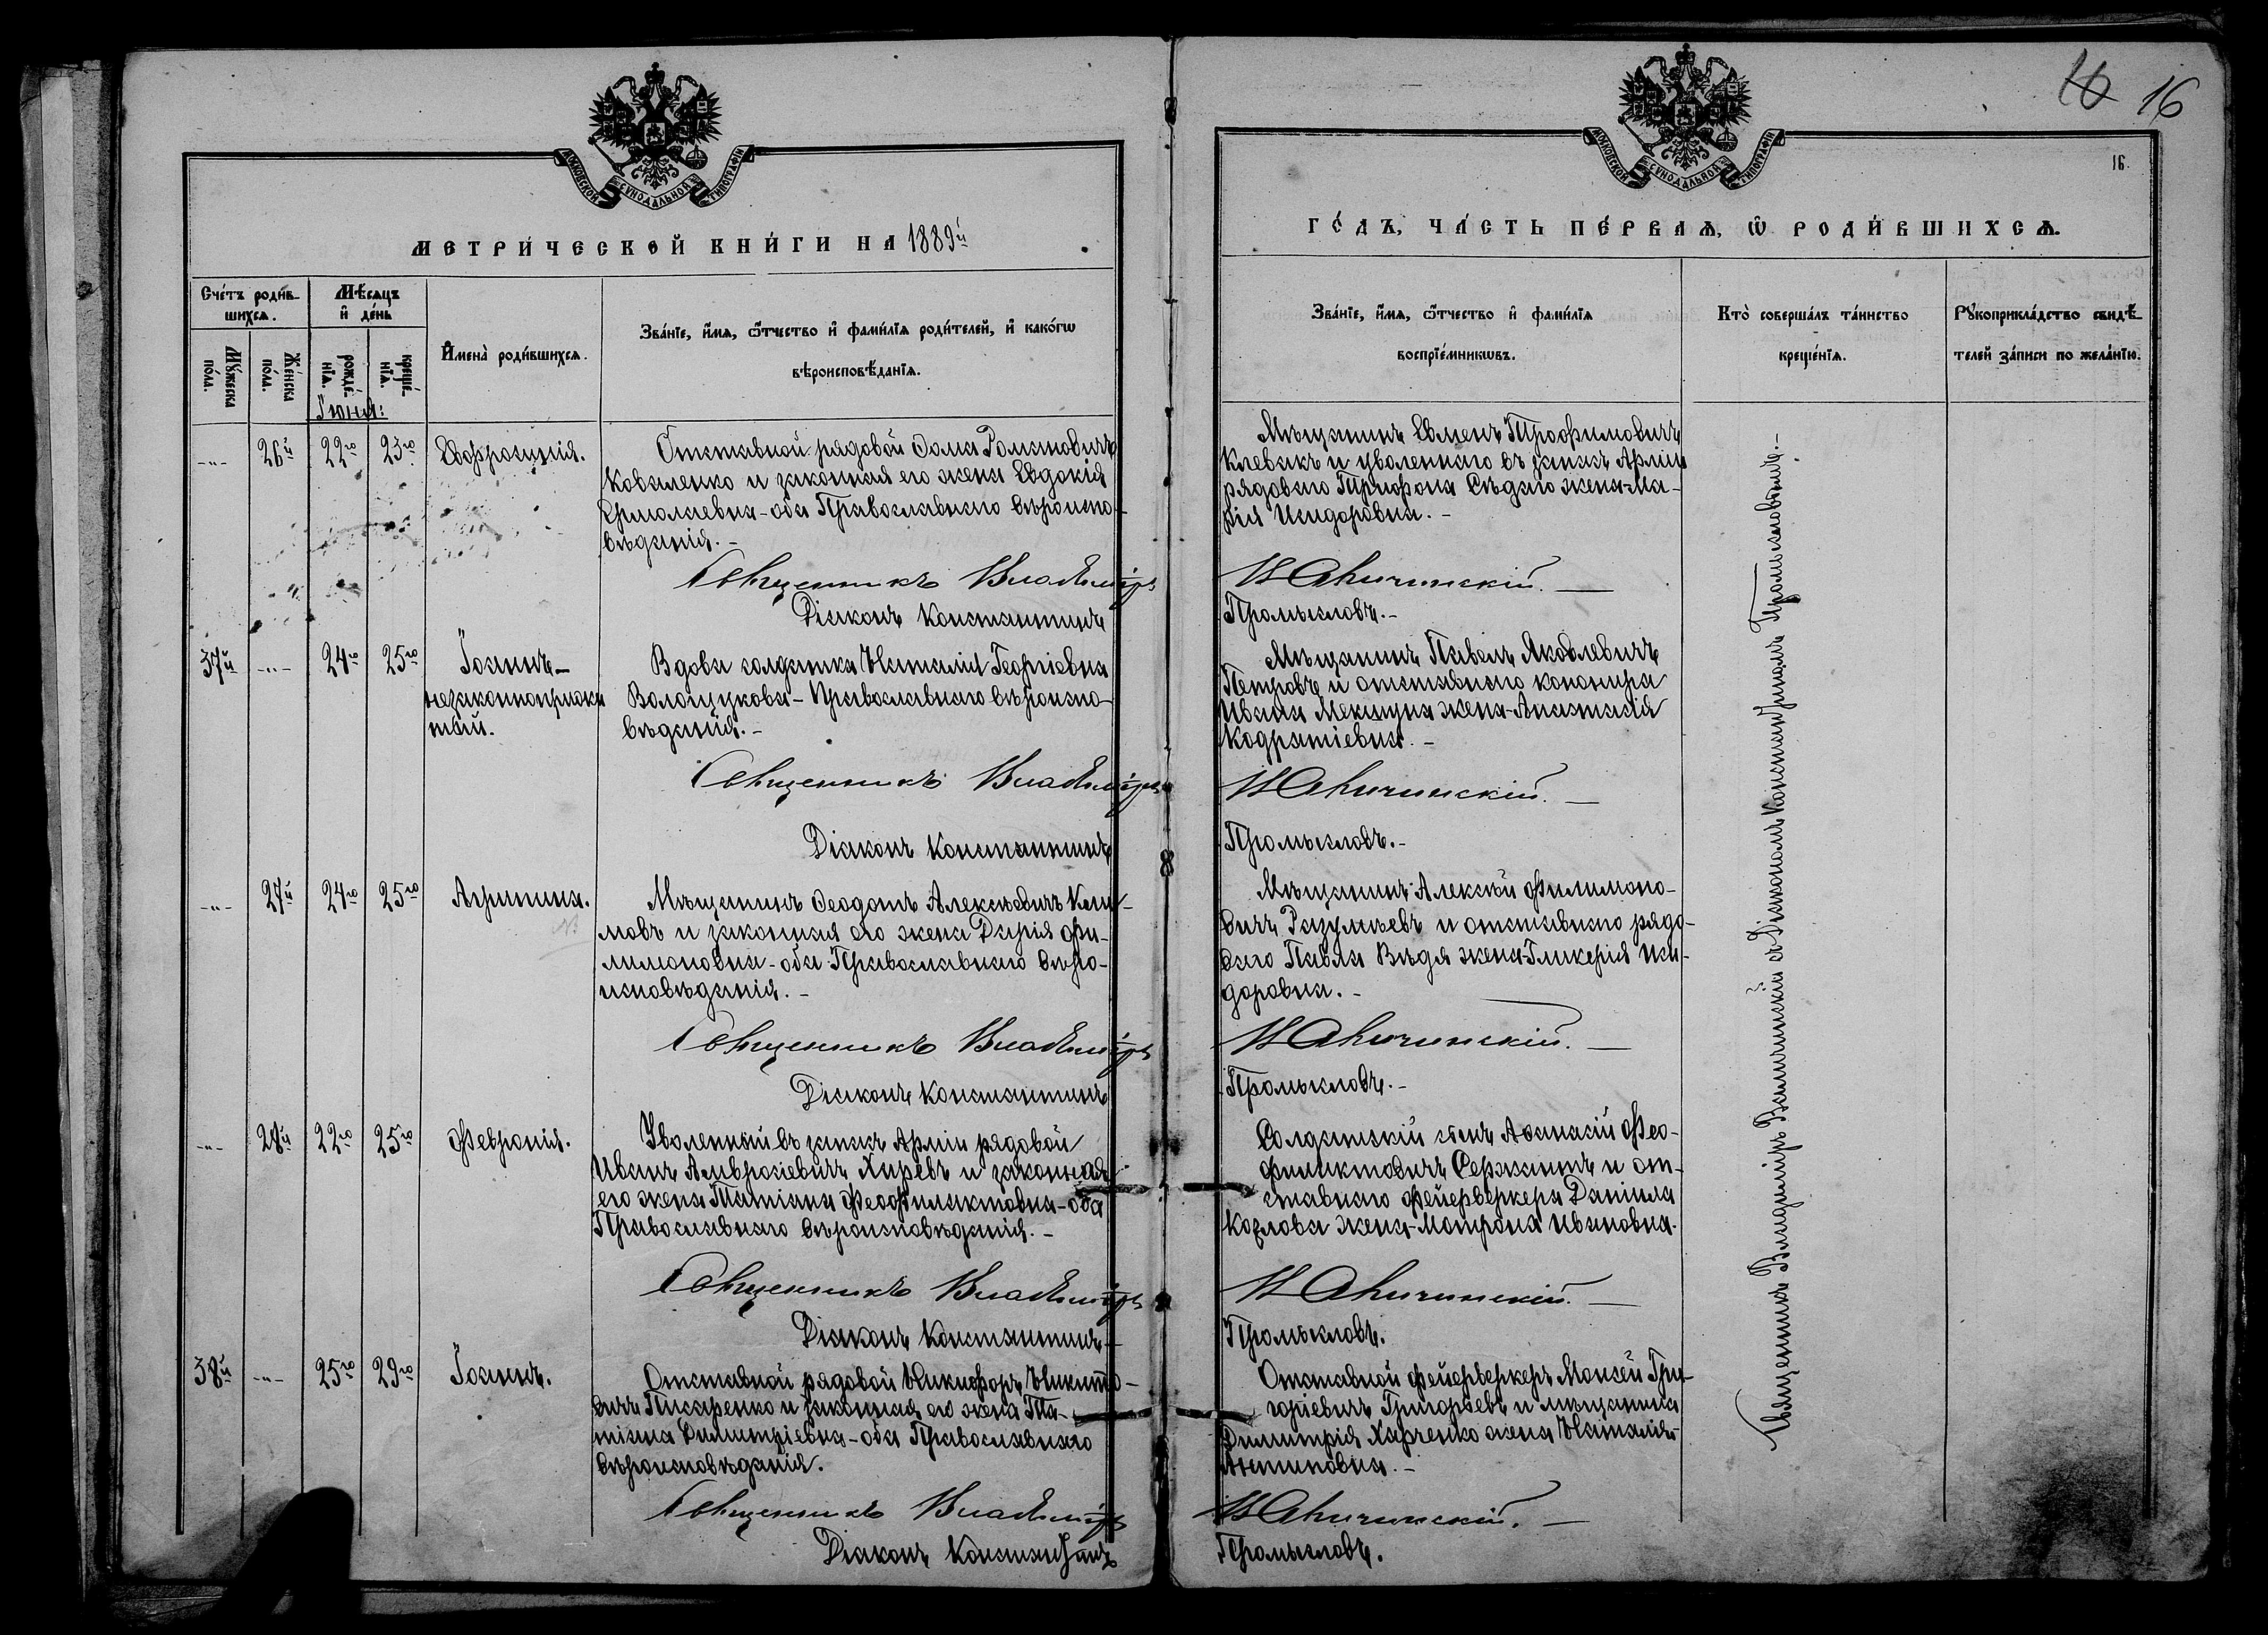 16 16
16.
МОСКОВСКОЙ СѴНОДАЛЬНОЙ ТИПОГРАФІИ
МЕТРИ́ЧЕСКОЙ КНИ́ГИ НА 1889й
Сче́тъ роди́в-
шихсѧ.
Мѣ́сѧцъ
и҆ де́нь
Мꙋ́жеска
по́ла.
Же́нска
по́ла.
рожде́-
нїѧ.
креще́-
нїѧ.
Іюня:
И҆мена̀ роди́вшихсѧ.
Зва́нїе, и҆́мѧ, ѻ҆́тчество и҆ фами́лїѧ роди́телей, и҆ како́гѡ
вѣроисповѣ́данїѧ.
-"- 26й 22го 23го Евфросинія.
Отставной рядовой Ѳома Романовичъ
Коваленко и законная его жена Евдокія
Ермолаевна - оба Православнаго вѣроиспо-
вѣданія. -
Священникъ Владиміръ
Діаконъ Константинъ
37й -"- 24го 25го Іоаннъ -
незаконноприжи
тый.
Вдова солдатка Наталія Георгіевна
Волощукова - Православнаго вѣроиспо-
вѣданія. -
Священникъ Владиміръ
Діаконъ Константинъ
-"- 27й 24го 25го Агрипина.
Мѣщанинъ Ѳеодотъ Алексѣевичъ Кли-
мовъ и законная его жена Дарія Фи-
лимоновна - оба Православнаго вѣро-
исповѣданія. -
Священникъ Владиміръ
Діаконъ Константинъ
-"- 28й 22го 25го Февронія.
Уволенный въ запасъ Арміи рядовой
Иванъ Амвросіевичъ Хиревъ и законная
его жена Татіана Феофилактовна - оба
Православнаго вѣроисповѣданія. -
Священникъ Владиміръ
Діаконъ Константинъ
38й -"- 25го 29го Іоаннъ.
Отставной рядовой Никифоръ Никито-
вичъ Писаренко и законная его жена Та-
тіана Димитріевна - оба Православнаго
вѣроисповѣданія.
Священникъ Владиміръ
Діаконъ Константинъ
МОСКОВСКОЙ СѴНОДАЛЬНОЙ ТИПОГРАФІИ
ГО́ДЪ, ЧА́СТЬ ПЕ́РВАѦ, Ѡ҆ РОДИ́ВШИХСѦ.
Зва́нїе, и҆́мѧ, ѻ҆́тчество и҆ фами́лїѧ
воспрїе́мникѡвъ.
Кто̀ соверша́лъ та́инство
креще́нїѧ.
Рꙋкоприкла́дство свидѣ́-
телей за́писи по жела́нїю.
Мѣщанинъ Евменъ Трофимовичъ
Клевакъ и уволеннаго въ запасъ Арміи
рядоваго Трифона Сѣдаго жена Ма-
рія Исидоровна. -
Промысловъ. -
Мѣщанинъ Павелъ Яковлевичъ
Петровъ и отставнаго канонира
Ивана жена Анастасія
Кодратіевна. -
Промысловъ. -
Мѣщанинъ Алексѣй Филимоно-
вичъ Разумѣевъ и отставнаго рядо-
ваго Павла жена Гликерія Иси-
доровна. -
Промысловъ. -
Солдатскій сынъ Аѳанасій Фео-
филактовичъ Сержантъ и от-
ставнаго фейерверкера Даніила
Козлова жена - Матрона Ивановна.
Промысловъ.
Отставной фейерверкеръ Моисей Гри-
горіевичъ Григорьевъ и мѣщанина
Димитрія Харченко жена Наталія
Промысловъ.
Священникъ Владиміръ съ Діакономъ Константиномъ Промысловымъ. -